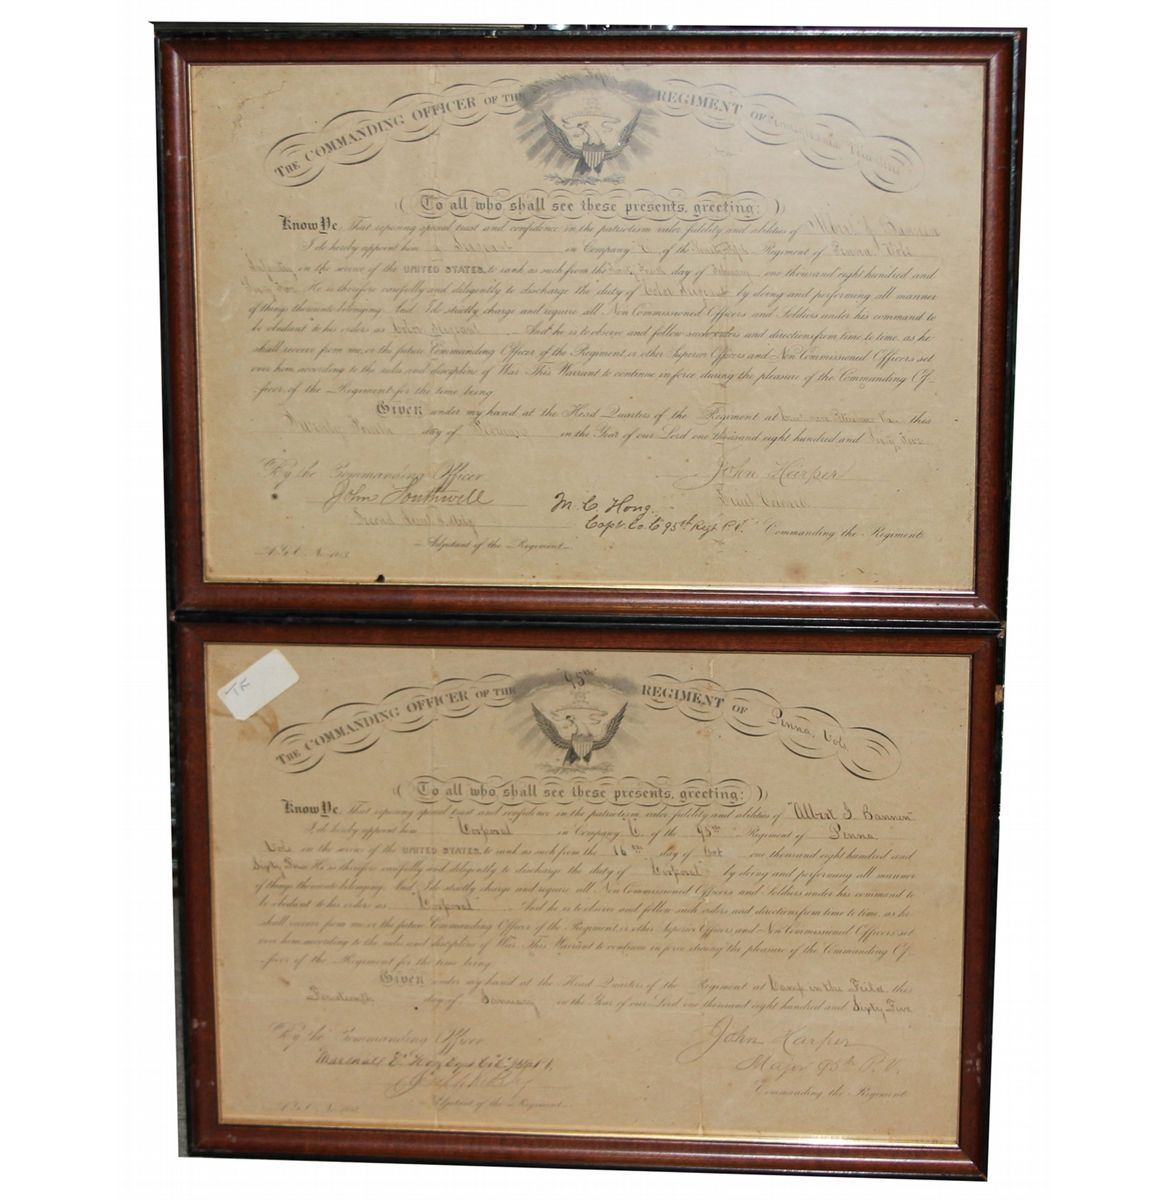 THE COMMANDING OFFICER OF THE REGIMENT OF
To all who shall see these presents, greeting:
Know Ye, That reposing special trust and confidence in the patriotism, valor, fidelity and abilities of Albert J. Bannen
I do hereby appoint him Sergeant in Company C of the Regiment of Penna. Vols
Infantry in the service of the UNITED STATES, to rank as such from the day of one thousand eight hundred and
He is therefore carefully and diligently to discharge the duty of Color Sergeant by doing and performing all manner
of things thereunto belonging. And I do strictly charge and require all Non Commissioned Officers and Soldiers under his command to
be obedient to his orders as Color Sergeant And he is to observe and follow such orders and directions from time to time, as he
shall receive from me, or the future Commanding Officer of the Regiment, or other Superior Officers and Non Commissioned Officers set
over him, according to the rules and discipline of War. This Warrant to continue in force during the pleasure of the Commanding Of-
ficer, of the Regiment for the time being
Given under my hand at the Head Quarters of the Regiment at this
day of in the Year of our Lord one thousand eight hundred and Sixty Five
By the Commanding Officer
John Harper
John Southwell
M. C. Hong
Capt. Co. C 95th Regt P. V. Commanding the Regiment
Adjutant of the Regiment
A.G.O. No.
TF
95th
THE COMMANDING OFFICER OF THE REGIMENT OF Penna. Vols.
To all who shall see these presents, greeting:
Know Ye, That reposing special trust and confidence in the patriotism, valor, fidelity and abilities of "Albert J. Bannen"
I do hereby appoint him "Corporal" in Company "C" of the 95th Regiment of Penna
Vols in the service of the UNITED STATES, to rank as such from the 16th day of Oct one thousand eight hundred and
Sixty He is therefore carefully and diligently to discharge the duty of "Corporal" by doing and performing all manner
of things thereunto belonging. And I do strictly charge and require all Non Commissioned Officers and Soldiers under his command to
be obedient to his orders as "Corporal" And he is to observe and follow such orders and directions from time to time, as he
shall receive from me, or the future Commanding Officer of the Regiment, or other Superior Officers and Non Commissioned Officers set
over him, according to the rules and discipline of War. This Warrant to continue in force during the pleasure of the Commanding Of-
ficer, of the Regiment for the time being
Given under my hand at the Head Quarters of the Regiment at Camp in the Feild, this
Fourteenth day of January in the Year of our Lord one thousand eight hundred and Sixty Five
By the Commanding Officer
John Harper
Major 95th P. V.
Adjutant of the Regiment
Commanding the Regiment
A.G.O. No.